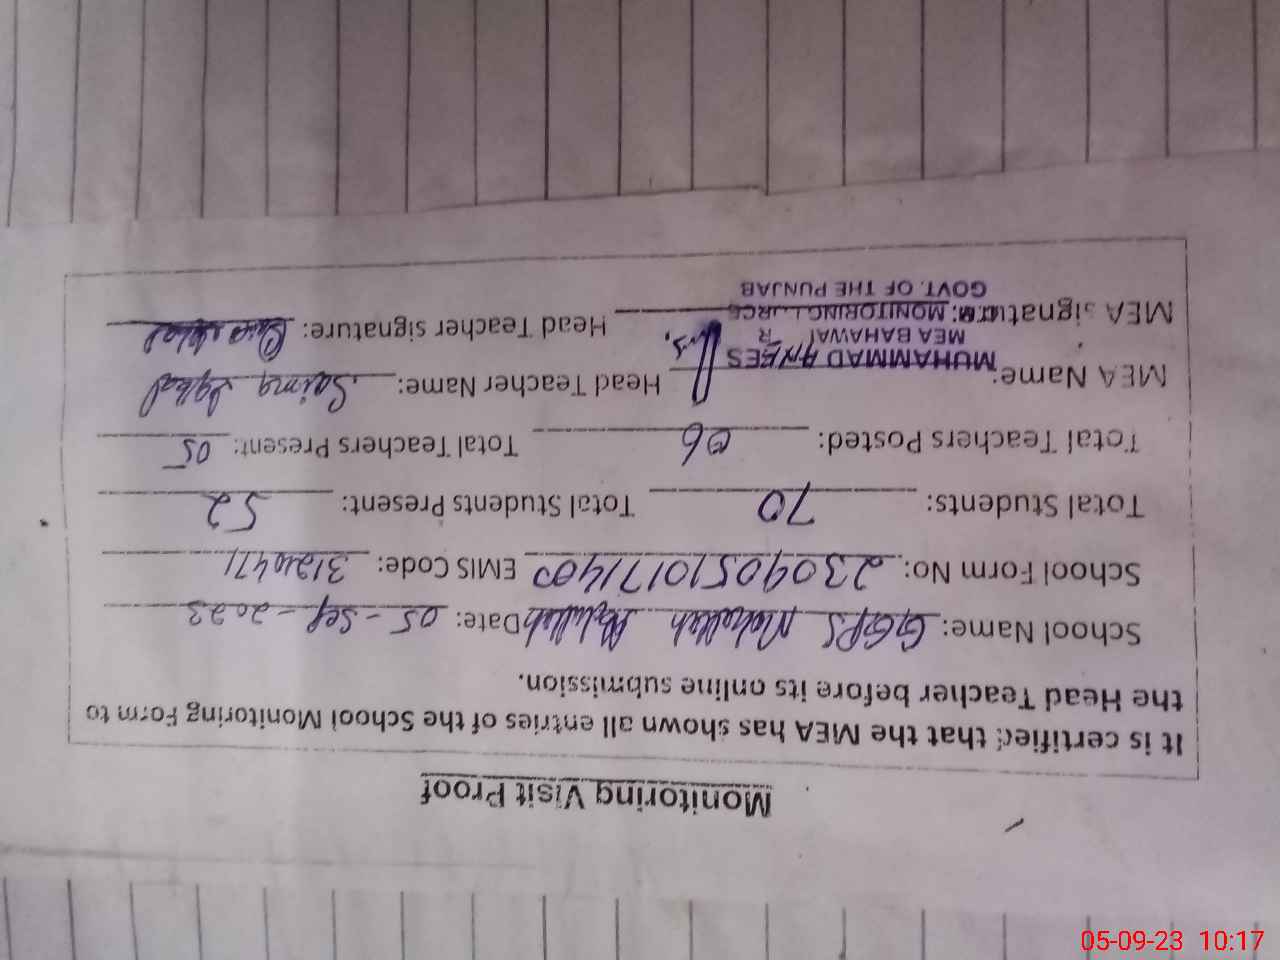 Monitoring Visit Proof
It is certified that the MEA has shown all entries of the School Monitoring Form to
the Head Teacher before its online submission.
School Name: GGPS Mohallah Date: 05-Sep-2023
School Form No: 23090510171400 EMIS Code: 31210471
Total Students: 70 Total Students Present: 52
Total Teachers Posted: 06 Total Teachers Present: 05
MEA Name: MUHAMMAD ANEES Head Teacher Name: Saima Iqbal
MEA BAHAWAL
MEA Signature: MONITORING Head Teacher signature:
GOVT. OF THE PUNJAB
05-09-23 10:17